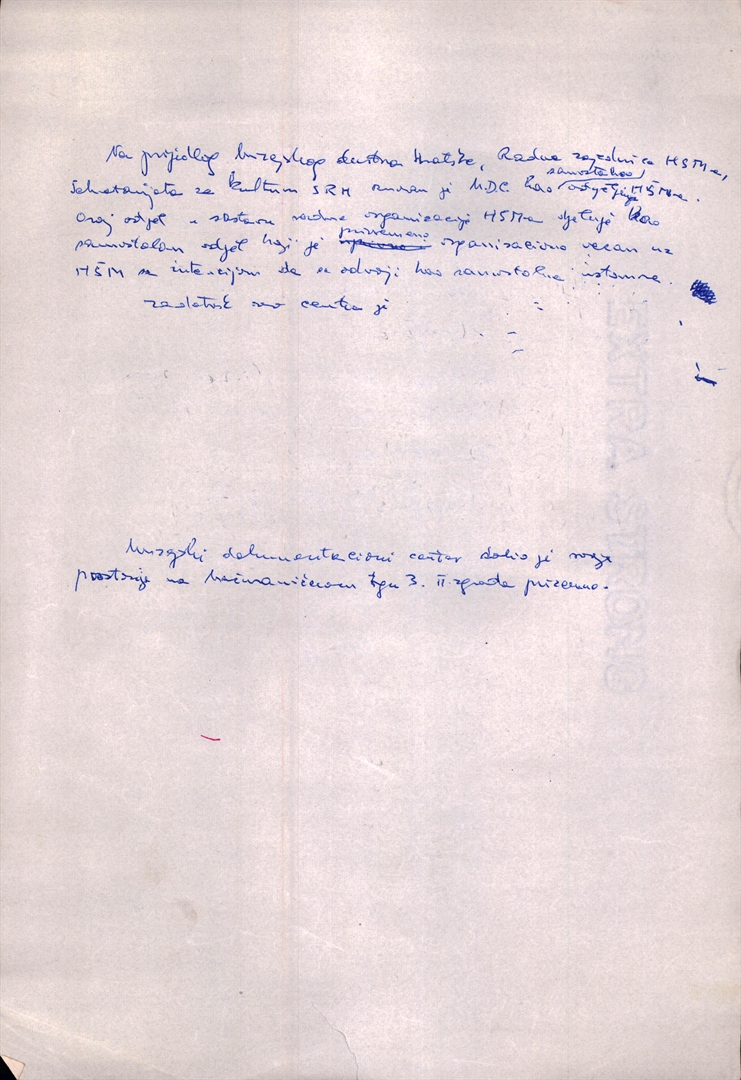 Na prijedlog muzejskog društva Hrvatske, Radne zajednice HŠM-a,
samostalno
Sekretarijata za kulturu SRH osnovan je MDC kao odjeljenje HŠM-a.
Ovaj odjel u sastavu radne organizacije HŠMa djeluje kao
privremeno
samostalan odjel koji je organizaciono vezan uz
HŠM sa intencijom da se odvoji kao samostalna ustanova.
zadatak ovog centra je
Muzejski dokumentacioni centar dobio je svoje
prostorije na Mažuranićevom trgu 3. II. zgrada prizemno.
EXTRA STRONG